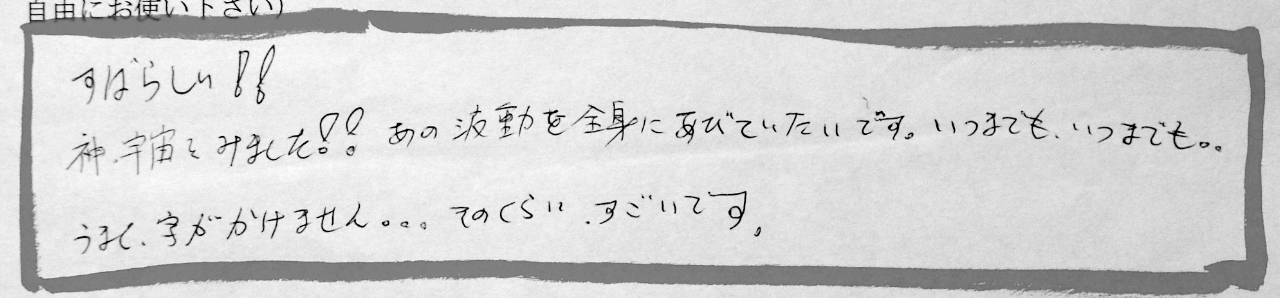 自由にお使い下さい)
すばらしい!!
神、宇宙をみました!! あの波動を全身にあびていたいです。いつまでも、いつまでも。。
うまく、字がかけません。。。そのくらい、すごいです。